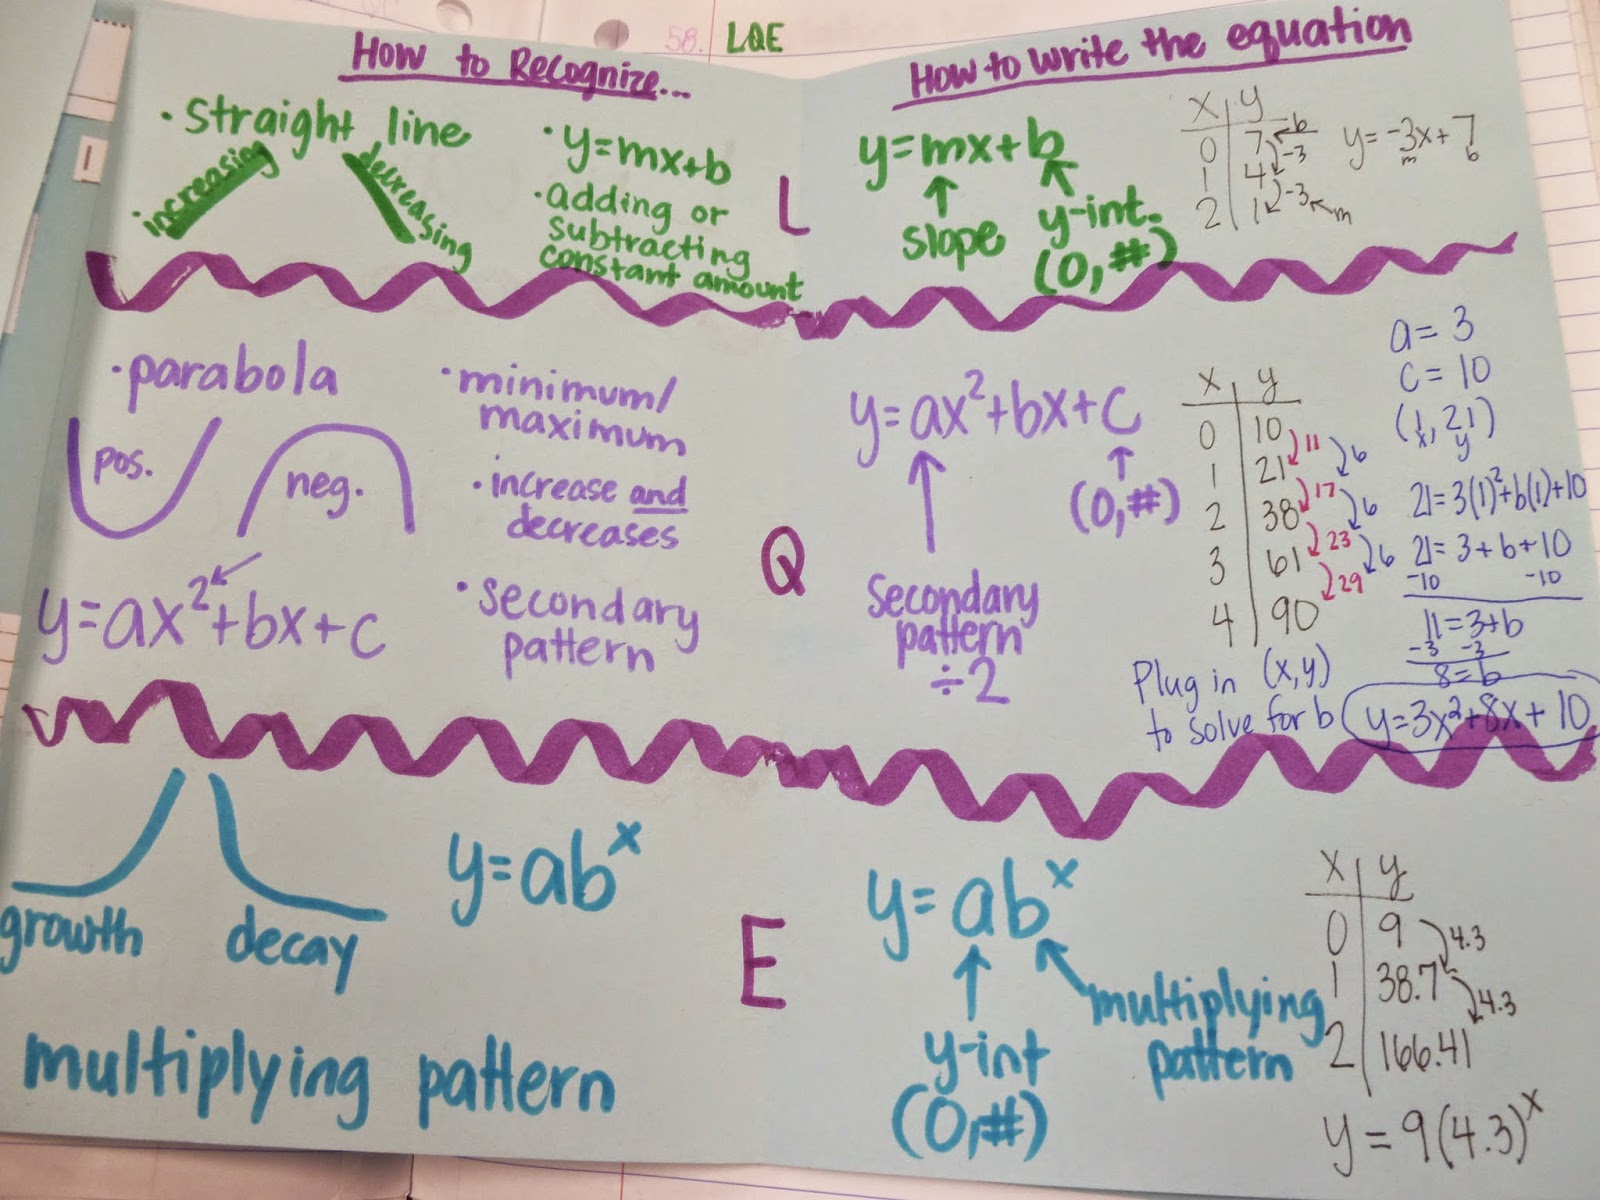 58. LQE
How to Recognize...
• straight line
increasing
decreasing
• y=mx+b
• adding or
subtracting
constant amount
L
How to write the equation
y=mx+b
slope
y-int.
(0,#)
x y
0 7 b
-3
1 4
-3 m
2 1
y=-3x+7
m b
• parabola
pos.
neg.
y=ax²+bx+c
• minimum/
maximum
• increase and
decreases
• secondary
pattern
Q
y=ax²+bx+c
(0,#)
Secondary
pattern
÷2
x y
0 10
11
1 21 6
17
2 38 6
23
3 61 6
29
4 90
a=3
c=10
(1,21)
x y
21=3(1)²+b(1)+10
21=3+b+10
-10 -10
11=3+b
-3 -3
8=b
Plug in (x,y)
to solve for b
y=3x²+8x+10
growth
decay
y=abˣ
multiplying pattern
E
y=abˣ
y-int
(0,#)
multiplying
pattern
x y
0 9
4.3
1 38.7
4.3
2 166.41
y=9(4.3)ˣ